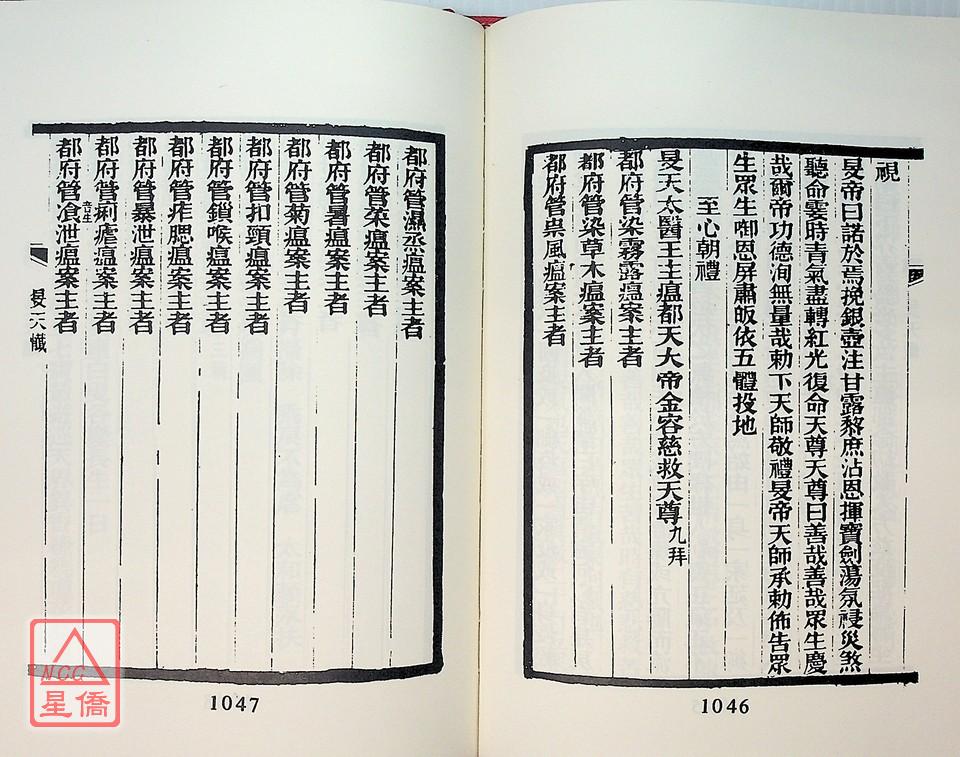 祝
旻帝曰諾於焉挽銀壺注甘露黎庶沾恩揮寶劍蕩氛祲災煞
聽命霎時青氣盡轉紅光復命天尊天尊曰善哉善哉眾生慶
哉爾帝功德洵無量哉勅下天師敬禮旻帝天師承勅佈告眾
生眾生啣恩屏肅皈依五體投地
至心朝禮
旻天太醫王主瘟都天大帝金容慈救天尊九拜
都府管染霧露瘟案主者
都府管染草木瘟案主者
都府管祟風瘟案主者
1046
都府管濕烝瘟案主者
都府管瘟案主者
都府管暑瘟案主者
都府管菊瘟案主者
都府管扣頸瘟案主者
都府管鎖喉瘟案主者
都府管痄腮瘟案主者
都府管暴泄瘟案主者
都府管痢瘧瘟案主者
都府管飡泄瘟案主者
旻天懺
1047
NCC
星僑